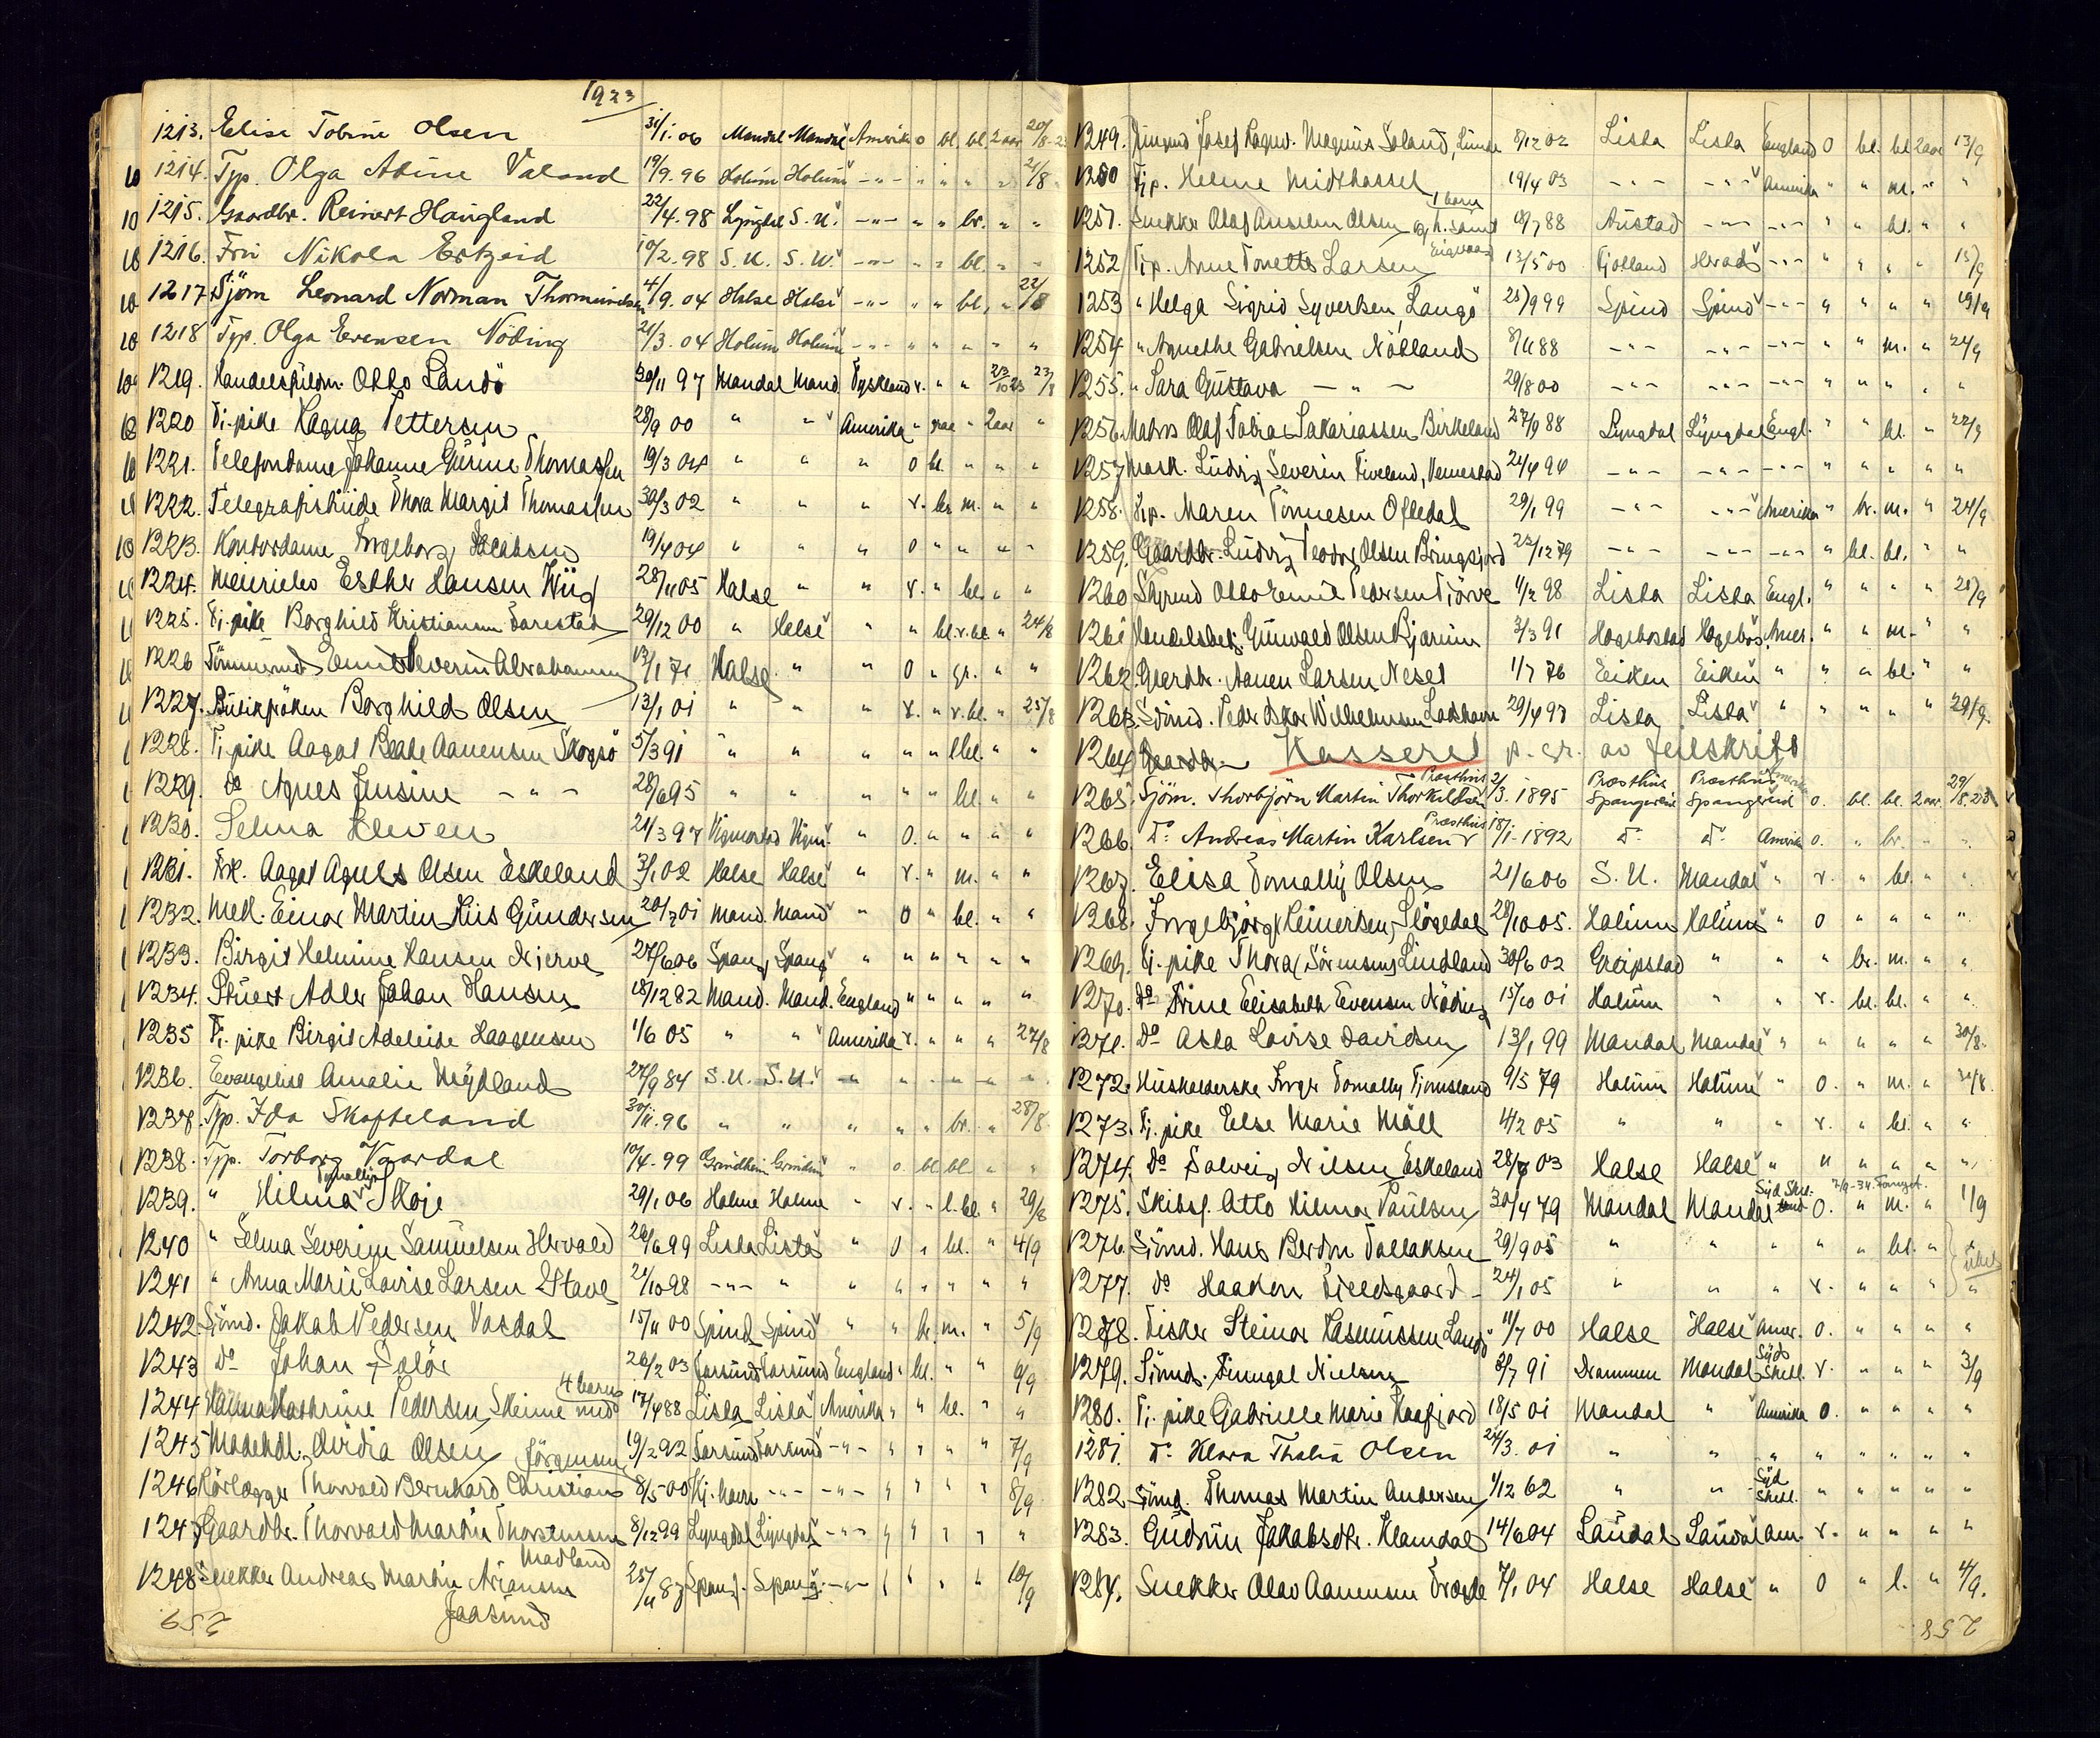 1923
1213. Elise Tobine Olsen 31/1. 06 Mandal Mandal Amerika o bl. bl. 2 aar 20/8-23
1214. Typ. Olga Aline Valand 19/9. 96 Holum Holum -"- " " " " 21/8.
1215. Gaardbr. Reinert Haugland 22/4. 98 Lyngdal S. U. -"- " " br. " "
1216. Fru Nikola Ertzeid 10/2. 98 S. U. S. U. -"- " " bl. " "
1217 Sjöm Leonard Norman Thormundsen 4/9. 04 Halse Halse -"- " " bl. " 22/8
1218 Typ. Olga Evensen Nöding 21/3. 04 Holum Holum -"- " " " " "
1219. Handelsfuldm. Otto Landö 30/11 97 Mandal Mand. Tyskland v. " " 23/10 23 23/8
1220 Tj. pike Ragna Pettersen 28/9 00 " " Amerika " graa " 2 aar "
1221. Telefondame Johanne Gurine Thomassen 19/3 04 " " " o bl. " " "
1222. Telegrafistinde Thora Margit Thomassen 30/3 02 " " " v. br m. " "
1223. Kontordame Ingeborg Jacobsen 19/4 04 " " " o " " " "
1224. Meieribes Esther Hansen Wiig 28/11 05 Halse " " v. " bl. " "
1225. Tj. pike Borghild Kristiansen Jarestad 29/12 00 " Halse " " bl. v. bl. " 24/8
1226 Tömmermd. Emil Severin Abrahamsen 13/1 71 Halse " " o " gr. " "
1227. Butikfröken Borghild Olsen 13/1 01 " " " v. " v. bl. " 25/8
1228. Tj. pike Aagot Beate Aanensen Skogsö 5/3 91 " " " " " lbl. " "
1229. do Agnes Jensine -"- 28/6 95 " " " " " bl. " "
1230. Selma Kleven 21/3 97 Vigmostad Vigm. " o. " " " "
1231. Frk. Aagot Agnes Olsen Eskeland 3/1 02 Halse Halse " v. " m. " "
1232. Mek. Einar Martin Kiis Gundersen 20/7 01 Mand. Mand " o " bl. " "
1233. Birgit Helmine Hansen Njerve 27/6 06 Spang. Spang " " " " " "
1234. Stuert Adler Johan Hansen 18/12 82 Mand. Mand. England " " " " "
1235 Tj. pike Birgit Adeleide Haagensen 1/6 05 " " Amerika v. " " " 27/8
1236. Evangelist Amalie Mydland 27/9 84 S. U. S. U. " " " " " "
1237. Typ. Ida Skofteland 30/11. 96 " " " " " br. " 28/8.
1238. Typ. Torborg Vaardal 10/4. 99 Grindheim Grindheim " o. bl bl. " "
1239. " Hilma Tomally Skoje 29/1 06 Holme Holme " v. " l. bl. " 29/8
1240 " Selma Severine Samuelsen Hervold 26/6 99 Lista Lista " o " bl. " 4/9
1241 " Anna Marie Lovise Larsen Stave 21/10 98 -"- " " " " " " "
1242. Sjömd. Jakob Pedersen Vasdal 15/11 00 Spind Spind " " br. m. " 5/9
1243 do Johan Solör 26/2 03 Farsund Farsund England " bl. " " 6/9
1244 Helma Kathrine Pedersen Skeime med 4 barn 17/4 88 Lista Lista Amerika " " bl. " "
1245 Modehdl. Ovidia Olsen 19/2 92 Farsund Farsund -"- " " " " 7/9
1246 Rörlægger Thorvald Bernhard Christians Jörgensen 8/5-00 Kj. havn -"- -"- " " " " 8/9
1247 Gaardbr. Thorvald Martin Thorstensen 8/12 99 Lyngdal Lyngdal -"- " " " " "
1248 Snekker Andreas Martin Arjansen Madland Jaasund 25/11 87 Spang. Spang. -"- " " " " 10/9
259
1249. Josef Ragnv. Magnus Soland, Lunde 8/12 02 Lista Lista England o bl. bl. 2 aar 13/9
1250 Tjp. Helene Midthassel 19/4 03 -"- -"- Amerika " " m. " "
1251. Snekker Olaf Anselm Olsen og h. samt 1 barn 18/7 88 Austad -"- -"- " " bl. " "
1252 Tjp. Anne Tonette Larsen 13/5 00 Fjotland Kvads -"- " " " " 15/9
1253 " Helga Sigrid Syvertsen, Langö 25/9 99 Spind Spind -"- " " " " 19/9
1254 " Agnethe Gabrielsen Nötland 8/11 88 -"- -"- -"- " " m. " 24/9
1255. " Sara Gustava -"- 29/8 00 -"- -"- -"- " " " " "
1256. Matros Olaf Tobias Sakariassen Birkeland 27/9 88 Lyngdal Lyngdal Engl. " " bl. " 22/9
1257 Mask. Ludvig Severin Fiveland, Vemestad 21/4 94 -"- -"- -"- " " " " "
1258. Tjp. Maren Tönnesen Ofledal 29/1 99 -"- -"- Amerika " br. m. " 24/9
1259. Gaardbr. Ludvig Teodor Olsen Bringsjord 22/12 79 -"- -"- -"- " bl. bl. " "
1260 Styrmd Otto Emil Pedersen Tjörve 1/2 98 Lista Lista Engl. " " " " 25/9
1261 Handelsbetj. Gunvald Olsen Kjerium 3/3 91 Hægebostad Hægebos. Amer. " " m. " "
1262. Gaardbr. Aanen Larsen Neset 1/7 76 Eiken Eiken " " " bl. " "
1263. Sjömd. Peder Oskar Wilhelmsen Loshavn 29/4 97 Lista Lista " " " " " 29/9.
1264 Gaardbr. Kasseret p. gr. av feilskrift
1265. Sjöm. Thorbjörn Martin Thorkildsen Præsthus 2/3. 1895 Præsthus Spangereid Præsthus Spangereid Amerika o. bl. bl. 2 aar. 29/8. 23
1266. do Andreas Martin Karlsen Præsthus 18/1-1892 do do Amerika o. " br. " "
1267. Elisa Tomally Olsen 21/6 06 S. U. Mandal " v. " bl. " "
1268. Ingebjörg Reinertsen Slögedal 28/10 05. Holum Holum " o " " " "
1269. Tj. pike Thora (Sörensen) Lindland 30/6 02 Greipstad " " " br. m. " "
1270. do Trine Elisabeth Evensen Nöding 15/10 01 Holum " " v. bl. bl. " "
1271. do Asta Lovise Davidsen 13/1 99 Mandal Mandal " " " " " 30/8.
1272. Husholderske Inger Tomally Fjomsland 9/5 79 Holum Holum " o. " m. " 31/8.
1273. Tj. pike Else Marie Möll 4/2 05 " " " v. " bl. " "
1274. do Solveig Nilsen Eskeland 28/7 03 Halse Halse " " " " " "
1275. Skibsf. Otto Hilmar Paulsen 30/4 79 Mandal Mandal Syd Shetland o. " m. " 1/9
1276. Sjömd. Hans Berdin Tallaksen 29/9 05 " " " " " bl. " "
1277. do Haakon Fjeldsgaard 24/1 05 " " " v. " " " "
1278. Fisker Steinar Rasmussen Landö 11/7 00 Halse Halse Amer. o. " " " "
1279. Sjömd. Fingal Nielsen 3/7 91 Drammen Mandal Syd Shetl. v. " " " 3/9
1280. Tj. pike Gabrielle Marie Kaafjord 18/5 01 Mandal " Amerika o. " " " "
1281 do Klara Thalia Olsen 24/3. 01 " " " " " " " "
1282 Sjömd. Thomas Martin Andersen 1/12 62 " " Syd Shetl. " " " " "
1283. Gudrun Jakobsdtr. Klemdal 14/6 04 Laudal Laudal am. v. " " " "
1284. Snekker Olav Aanensen Tregde 7/1 04 Halse Halse " o " l. " 4/9.
258